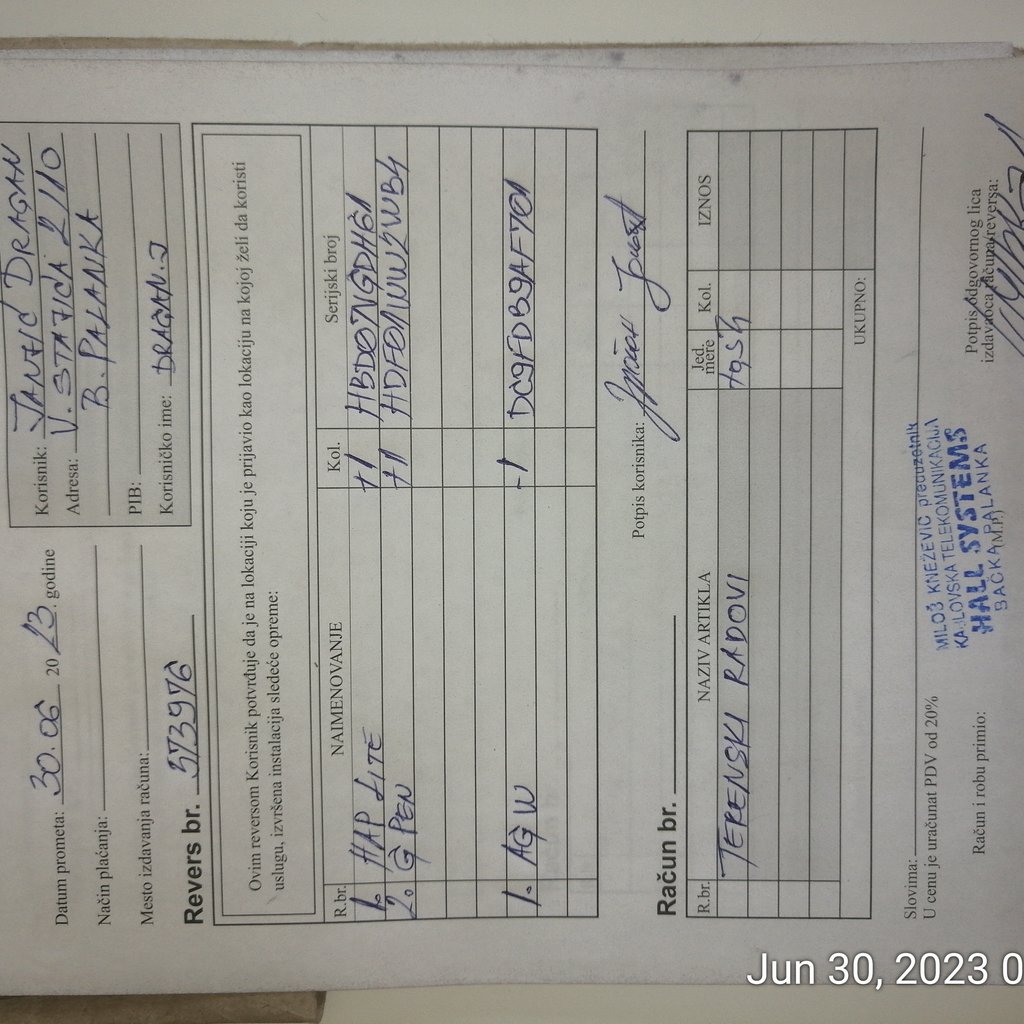 Datum prometa: 30.06 2023. godine
Način plaćanja:
Mesto izdavanja računa:
Korisnik: JANJIĆ DRAGAN
Adresa: V. STAJIĆA 2/10
B. PALANKA
PIB:
Korisničko ime: DRAGAN.J
Revers br. 573976
Ovim reversom Korisnik potvrđuje da je na lokaciji koju je prijavio kao lokaciju na kojoj želi da koristi
uslugu, izvršena instalacija sledeće opreme:
R.br. NAIMENOVANJE Kol. Serijski broj
1. HAP LITE +1 HBD07NGDHG1
2. G PEN +1
1. AGW -1 DC9FDB9AF701
Potpis korisnika:
Račun br.
R.br. NAZIV ARTIKLA Jed. mere Kol. IZNOS
TERENSKI RADOVI
UKUPNO:
Slovima:
U cenu je uračunat PDV od 20%
Račun i robu primio:
MILOŠ KNEŽEVIĆ preduzetnik
KARLOVSKA TELEKOMUNIKACIJA
HALL SYSTEMS
BAČKA PALANKA
(M.P.)
Potpis odgovornog lica
izdavaoca računa/reversa:
Jun 30, 2023 0